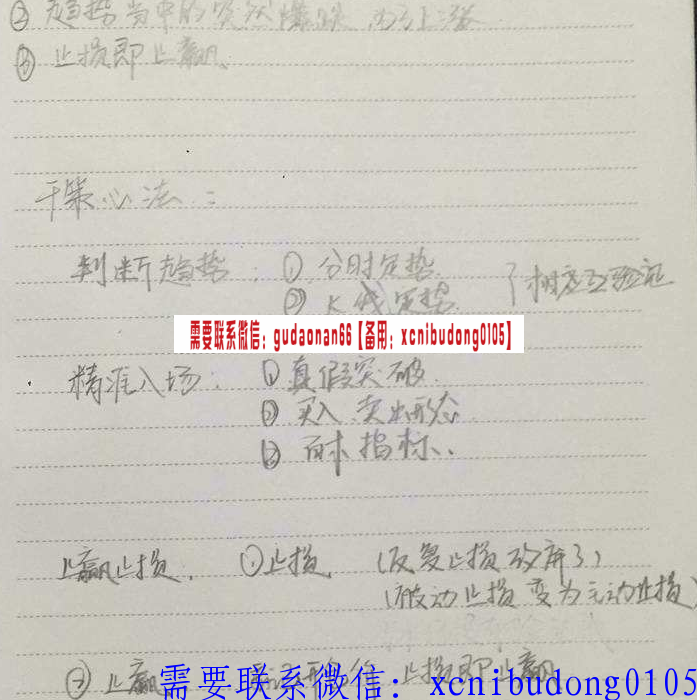 ② 趋势当中的突然爆跌
③ 止损即止赢
干策心法：
判断趋势： ① 分时定势
② K线定势 相应互验证
需要联系微信：gudaonan66【备用：xcnibudong0105】
精准入场： ① 真假突破
② 买入卖出形态
③ 指标
止赢止损 ① 止损 (反复止损 放弃了)
(被动止损变为主动止损)
② 止赢 止损即止赢
需要联系微信：xcnibudong0105